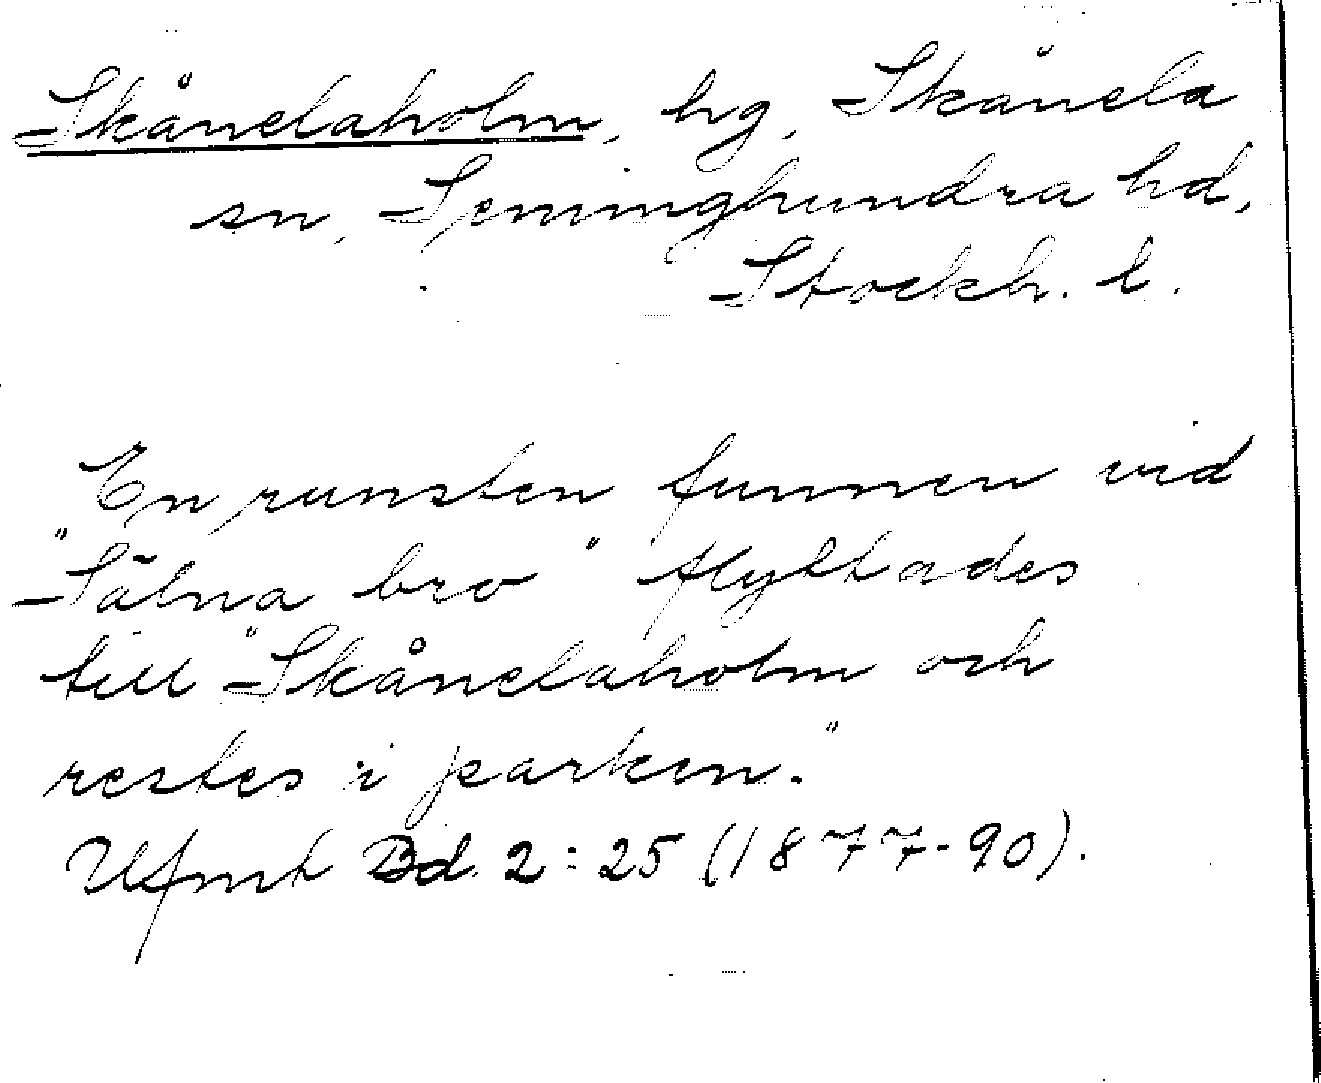 Skånelaholm, hg, Skånela
sn, Seminghundra hd,
Stockh. l.
En runsten funnen vid
"Sälna bro" flyttades
till "Skånelaholm och
restes i parken."
Ufmt Bd. 2:25 (1877-90).